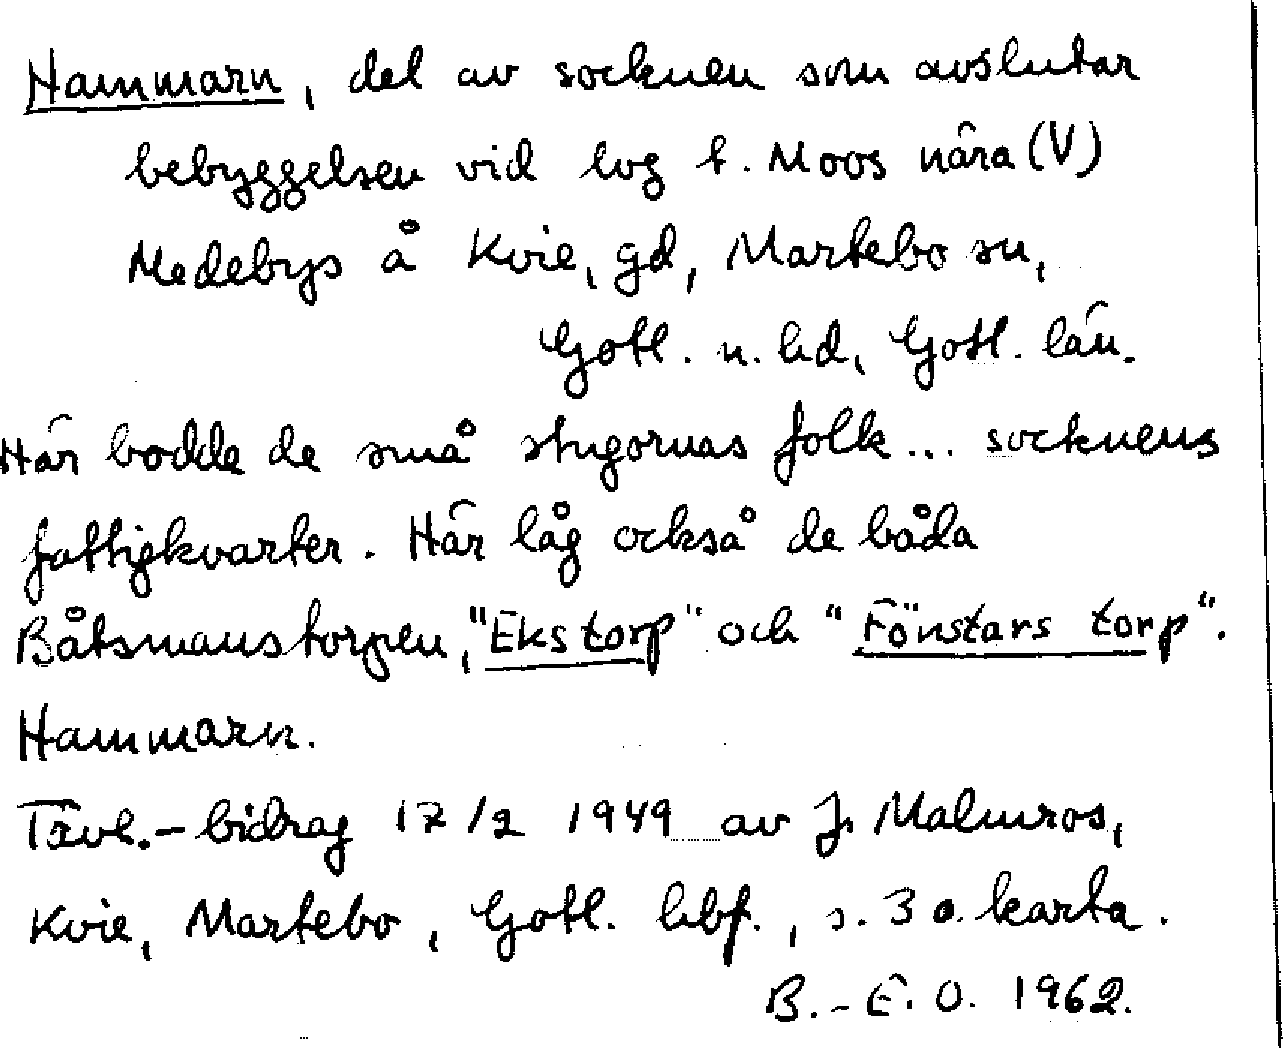 Hammarn, del av socknen som avslutar
bebyggelsen vid lvg t. Moos nära (V)
Medebys å Kvie, gd, Martebo sn,
Gotl. n. hd, Gotl. län.
Här bodde de små stugornas folk... socknens
fattigkvarter. Här låg också de båda
Båtsmanstorpen, "Ekstorp" och "Fönstars torp".
Hammarn.
Tävl.-bidrag 17/2 1949 av J. Malmros,
Kvie, Martebo, Gotl. hbf., s. 3 o. karta.
B.-E. O. 1962.